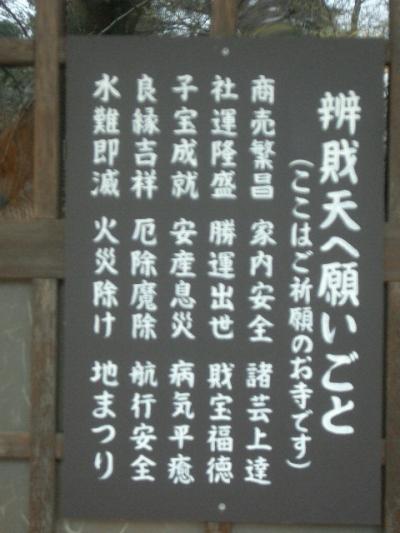 辨財天へ願いごと
（ここはご祈願のお寺です）
商売繁昌 家内安全 諸芸上達
社運隆盛 勝運出世 財宝福徳
子宝成就 安産息災 病気平癒
良縁吉祥 厄除魔除 航行安全
水難即滅 火災除け 地まつり